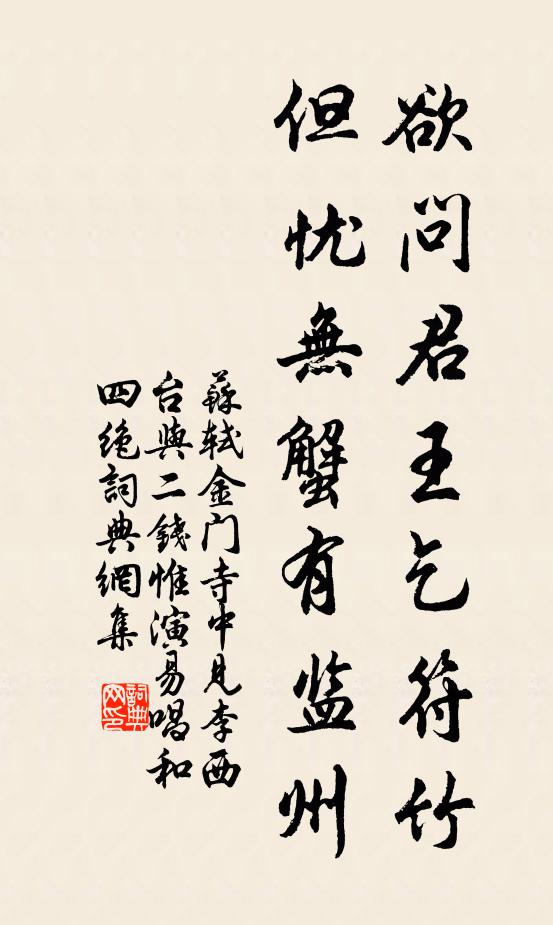 欲问君王乞符竹
但忧無蟹有监州
蘇轼金门寺中見李西
台與二錢惟演易唱和
四绝詞典網集
詞典网印